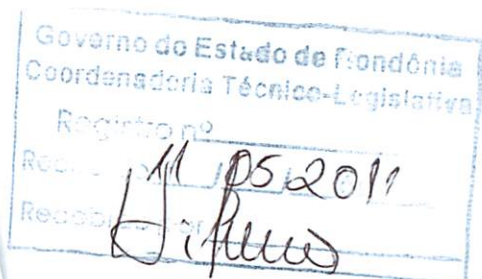 Governo do Estado de Rondônia
Coordenadoria Técnico-Legislativa
Registro nº
11 05 2011